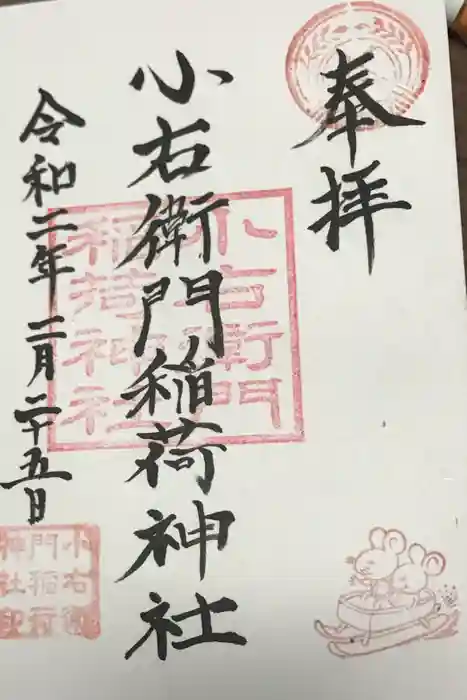 奉拝
小右衛門稲荷神社
令和二年二月二十五日
小右衛門
稲荷神社
小右衛
門稲荷
神社印